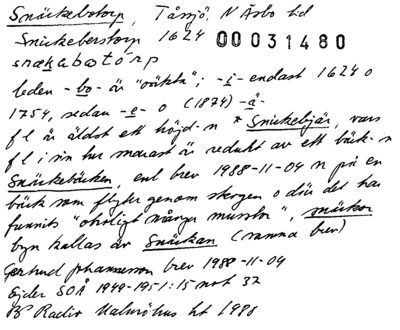 Snäckebotorp, Tåssjö, N Åsbo hd
Snickeberstorp 1624 00031480
snækabotórp
leden -bo- är "oäkta"; -i- endast 1624 o
1754, sedan -e- o (1874) -ä-
f l är äldst ett höjd-n * Snickebjär, vars
f l i sin tur snarast är redukt av ett bäck-n
Snäckebäcken, enl brev 1988-11-04 n på en
bäck som flyter genom skogen o där det har
funnits "otroligt många musslor", snäckor
byn kallas äv Snäckan (samma brev)
Gertrud Johansson brev 1988-11-04
Ejder SOÅ 1949-1951:15 not 37
BP Radio Malmöhus ht 1988